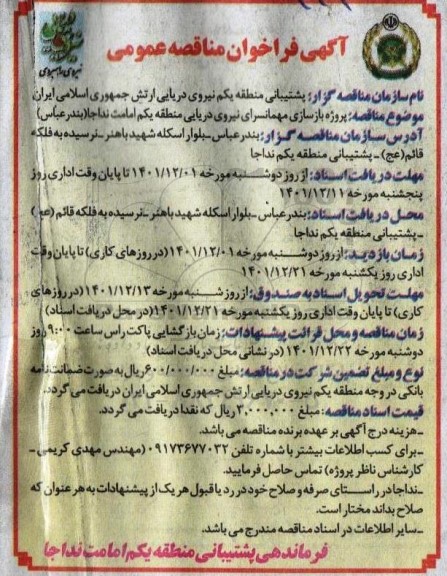 آگهی فراخوان مناقصه عمومی
نام سازمان مناقصه گزار: پشتیبانی منطقه یکم نیروی دریایی ارتش جمهوری اسلامی ایران
موضوع مناقصه: پروژه بازسازی مهمانسرای نیروی دریایی منطقه یکم امامت نداجا(بندرعباس)
آدرس سازمان مناقصه گزار: بندرعباس ـ بلوار اسکله شهید باهنر ـ نرسیده به فلکه
قائم(عج) ـ پشتیبانی منطقه یکم نداجا
مهلت دریافت اسناد: از روز دوشنبه مورخه ۱۴۰۱/۱۲/۰۱ تا پایان وقت اداری روز
پنجشنبه مورخه ۱۴۰۱/۱۲/۱۱
محل دریافت اسناد: بندرعباس ـ بلوار اسکله شهید باهنر ـ نرسیده به فلکه قائم (عج)
ـ پشتیبانی منطقه یکم نداجا
زمان بازدید: از روز دوشنبه مورخه ۱۴۰۱/۱۲/۰۱ (در روزهای کاری) تا پایان وقت
اداری روز یکشنبه مورخه ۱۴۰۱/۱۲/۲۱
مهلت تحویل اسناد به صندوق: از روز شنبه مورخه ۱۴۰۱/۱۲/۱۳ (در روزهای
کاری) تا پایان وقت اداری روز یکشنبه مورخه ۱۴۰۱/۱۲/۲۱ (در محل دریافت اسناد)
زمان مناقصه و محل قرائت پیشنهادات: زمان بازگشایی پاکت راس ساعت ۹:۰۰ روز
دوشنبه مورخه ۱۴۰۱/۱۲/۲۲ (در نشانی محل دریافت اسناد)
نوع و مبلغ تضمین شرکت در مناقصه: مبلغ ۶۰۰/۰۰۰/۰۰۰ ریال به صورت ضمانت نامه
بانکی در وجه منطقه یکم نیروی دریایی ارتش جمهوری اسلامی ایران دریافت می گردد.
قیمت اسناد مناقصه: مبلغ ۲,۰۰۰,۰۰۰ ریال که نقدا دریافت می گردد.
ـ هزینه درج آگهی بر عهده برنده مناقصه می باشد.
ـ برای کسب اطلاعات بیشتر با شماره تلفن ۰۹۱۷۳۶۷۷۰۳۲ (مهندس مهدی کریمی ـ
کارشناس ناظر پروژه) تماس حاصل فرمایید.
ـ نداجا در راستای صرفه و صلاح خود در رد یا قبول هر یک از پیشنهادات به هر عنوان که
صلاح بداند مختار است.
ـ سایر اطلاعات در اسناد مناقصه مندرج می باشد.
فرماندهی پشتیبانی منطقه یکم امامت نداجا